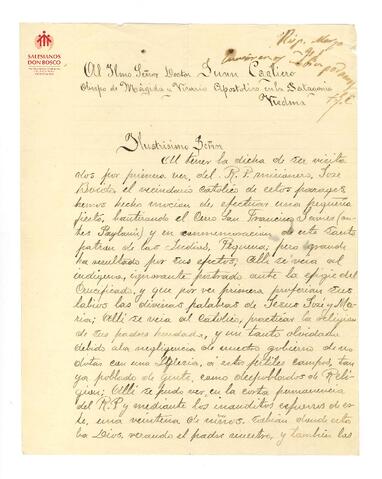 SALESIANOS
DON BOSCO
Al Ilmo Señor Doctor Juan Cagliero
Obispo de Mágida y Vicario Apostólico en la Patagonia
Viedma
Ilustrisimo Señor
Al tener la dicha de ser visita
dos por primera vez, del R. P. misionero, José
el vecindario catolico de estos parages
hemos hecho mocion de efectuar una pequeña
fiesta, bautizando el Cerro San Francisco Javier (an
tes ) y en conmemoracion de este Santo
patron de las Indias, Pequena; pero grande
ha resultado por sus efectos; Allí se veia al
indigena, ignorante postrado ante la efigie del
Crucificado, y que por ver primera proferian sus
labios las divinas palabras de Jesus José y Ma
ria; Allí se veia al Catolico, practicar la religion
de sus padres heredada, y un tanto olvidada
debido a la negligencia de nuestro gobierno de no
dotar con una Iglesia, a estos fertiles campos, tan
ya poblado de gente, como despoblados de Reli
gion; Allí se pudo ver, en la corta permanencia
del R. P. y mediante los inauditos esfuerzos de es
te, una veintena de niños. Sabian donde esta
ba Dios, rezando el padre nuestro, y tambien las